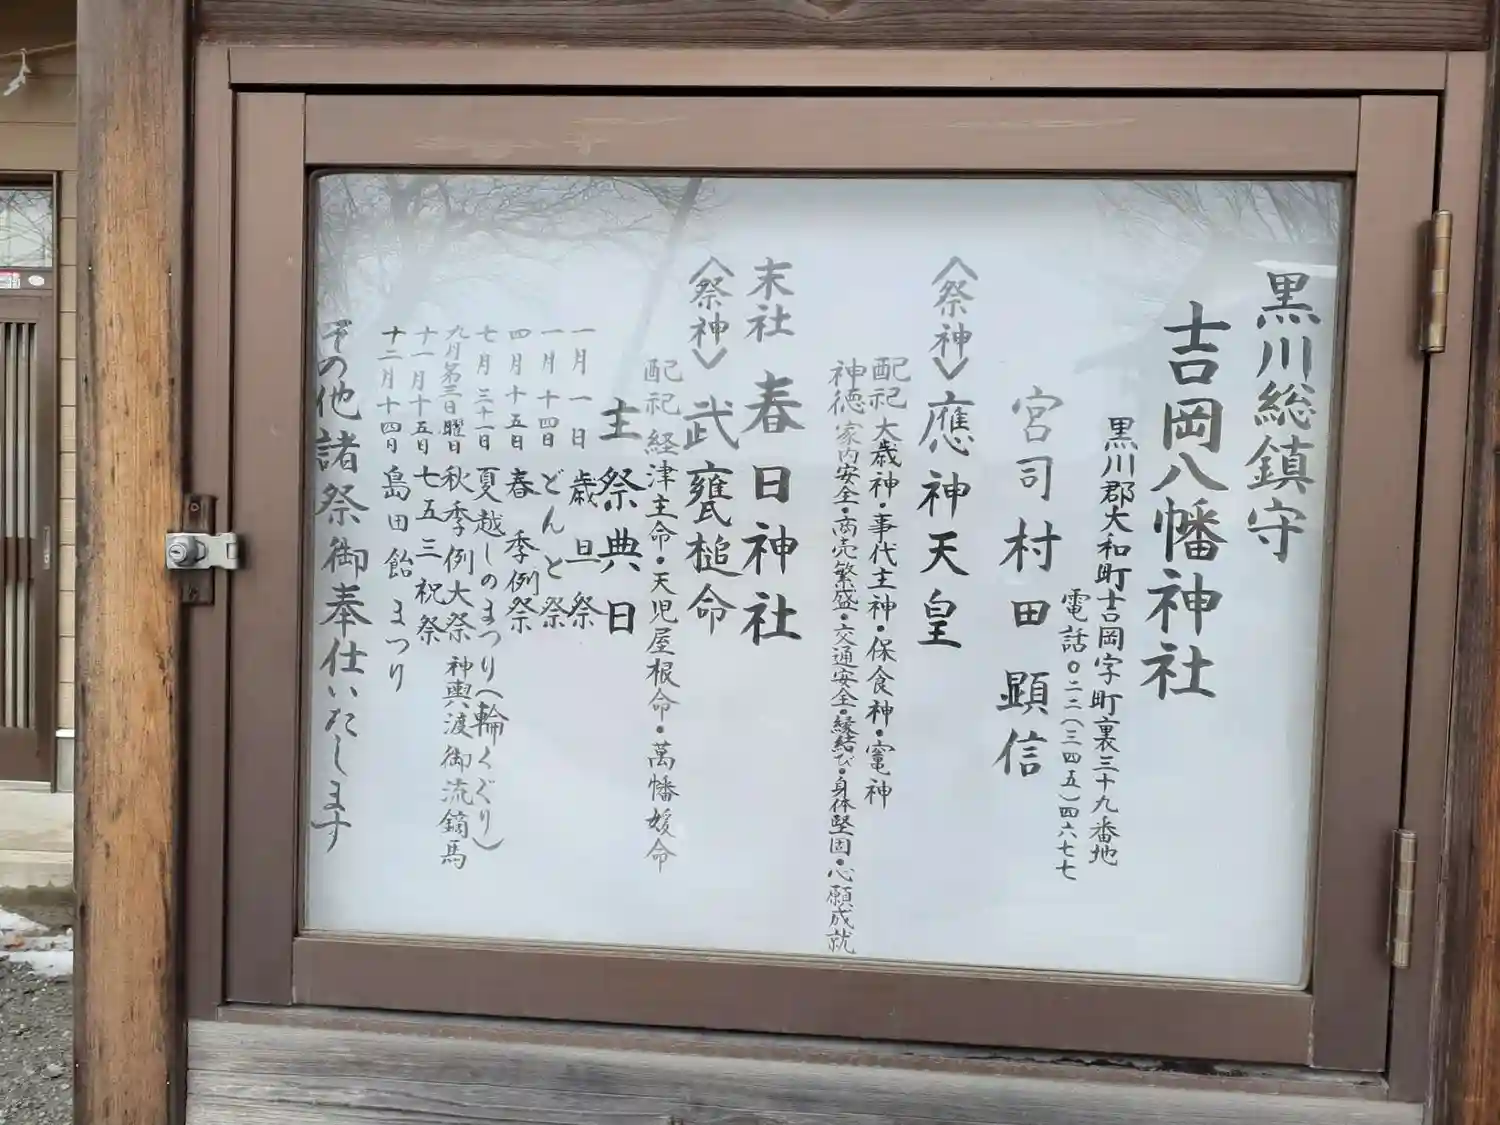 黒川総鎮守
吉岡八幡神社
黒川郡大和町吉岡字町裏三十九番地
電話〇二二(三四五)四六七七
宮司 村田顕信
〈祭神〉應神天皇
配祀 大歳神・事代主神・保食神・竃神
神徳 家内安全・商売繁盛・交通安全・縁結び・身体堅固・心願成就
末社 春日神社
〈祭神〉武甕槌命
配祀 経津主命・天児屋根命・萬幡媛命
主祭典日
一月一日 歳旦祭
一月十四日 どんと祭
四月十五日 春季例祭
七月三十一日 夏越しのまつり(輪くぐり)
九月第三日曜日 秋季例大祭 神輿渡御流鏑馬
十一月十五日 七五三祝祭
十二月十四日 島田飴まつり
その他諸祭御奉仕いたします